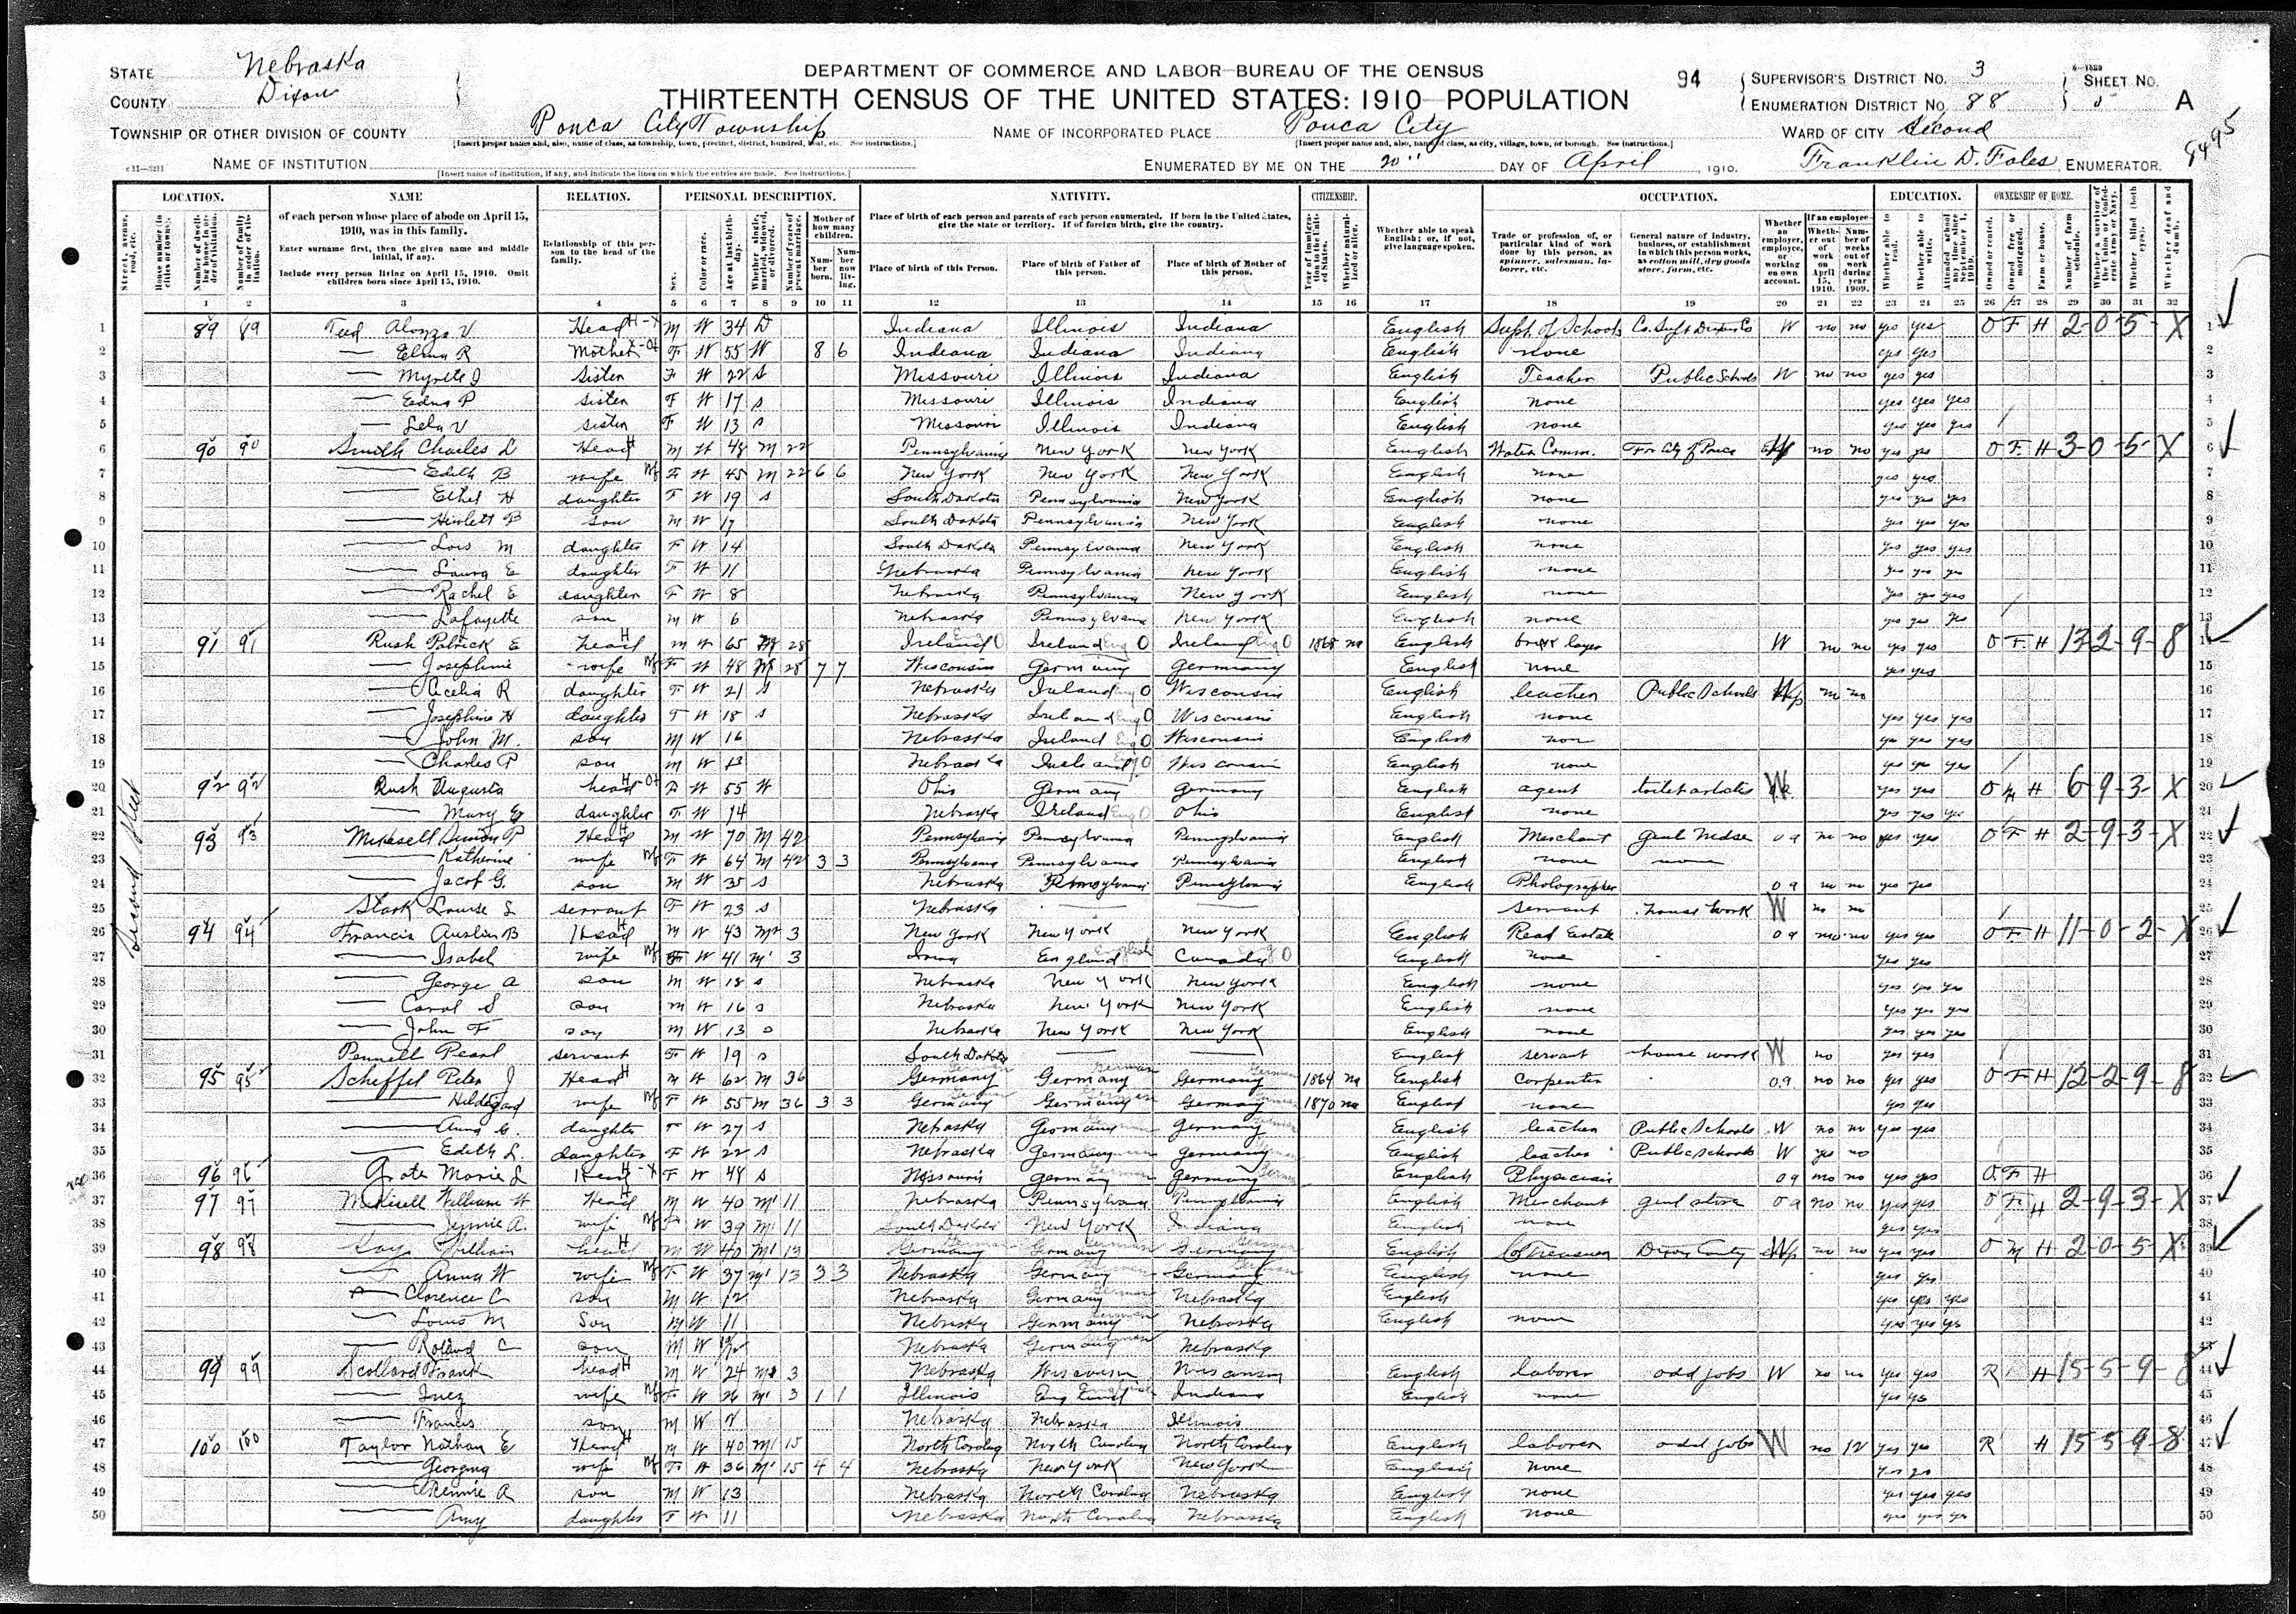 STATE Nebraska
COUNTY Dixon
DEPARTMENT OF COMMERCE AND LABOR—BUREAU OF THE CENSUS
THIRTEENTH CENSUS OF THE UNITED STATES: 1910—POPULATION
94
SUPERVISOR'S DISTRICT NO. 3
ENUMERATION DISTRICT NO. 88
SHEET NO. 5 A
TOWNSHIP OR OTHER DIVISION OF COUNTY Ponca City Township
NAME OF INCORPORATED PLACE Ponca City
WARD OF CITY Second
NAME OF INSTITUTION
ENUMERATED BY ME ON THE 20" DAY OF April, 1910. Franklin D. Fales, ENUMERATOR.
LOCATION. NAME RELATION. PERSONAL DESCRIPTION. NATIVITY. CITIZENSHIP. OCCUPATION. EDUCATION. OWNERSHIP OF HOME.
of each person whose place of abode on April 15, 1910, was in this family.
Enter surname first, then the given name and middle initial, if any.
Include every person living on April 15, 1910. Omit children born since April 15, 1910.
Relationship of this person to the head of the family.
Place of birth of each person and parents of each person enumerated. If born in the United States, give the state or territory. If of foreign birth, give the country.
Place of birth of this Person. Place of birth of Father of this person. Place of birth of Mother of this person.
Whether able to speak English; or, if not, give language spoken.
1 2 3 4 5 6 7 8 9 10 11 12 13 14 15 16 17 18 19 20 21 22 23 24 25 26 27 28 29 30 31 32
Second Street
1 89 89 Teed Alonzo V Head M W 34 D Indiana Illinois Indiana English Supt. of Schools W no no yes yes O F H 2-0-5-X
2 — R Mother F W 55 W 8 6 Indiana Indiana Indiana English none yes yes
3 — Myrtle J sister F W 22 S Missouri Illinois Indiana English Teacher Public Schools W no no yes yes
4 — Edna P sister F W 17 S Missouri Illinois Indiana English none yes yes yes
5 — Lela V sister F W 13 S Missouri Illinois Indiana English none yes yes yes
6 90 90 Smith Charles L Head M W 48 M 22 Pennsylvania New York New York English Water Comm. For City of Ponca no no yes yes O F H 3-0-5-X
7 — Edith B wife F W 45 M 22 6 6 New York New York New York English none yes yes
8 — Ethel H daughter F W 19 S South Dakota Pennsylvania New York English none yes yes yes
9 — Hewlett B son M W 17 South Dakota Pennsylvania New York English none yes yes yes
10 — Lois M daughter F W 14 South Dakota Pennsylvania New York English none yes yes yes
11 — Laura E daughter F W 11 Nebraska Pennsylvania New York English none yes yes yes
12 — Rachel E daughter F W 8 Nebraska Pennsylvania New York English none yes yes yes
13 — Lafayette son M W 6 Nebraska Pennsylvania New York English none yes yes yes
14 91 91 Rush Patrick E head M W 65 M 28 Ireland Ireland Ireland 1868 na English brick layer W no no yes yes O F H 13-2-9-8
15 — Josephine wife F W 48 M 28 7 7 Wisconsin Germany Germany English none yes yes
16 — Cecelia R daughter F W 21 S Nebraska Ireland Wisconsin English teacher Public Schools no no
17 — Josephine H daughter F W 18 S Nebraska Ireland Wisconsin English none yes yes yes
18 — John M. son M W 16 Nebraska Ireland Wisconsin English non yes yes yes
19 — Charles P son M W 13 Nebraska Ireland Wisconsin English none yes yes yes
20 92 92 Rush Augusta head F W 55 W Ohio Germany Germany English agent toilet articles W yes yes O M H 6-9-3-X
21 — Mary daughter F W 14 Nebraska Ireland Ohio English none yes yes yes
22 93 93 Mikesell P Head M W 70 M 42 Pennsylvania Pennsylvania Pennsylvania English Merchant Genl Mdse oa no no yes yes O F H 2-9-3-X
23 — Katherine wife F W 64 M 42 3 3 Pennsylvania Pennsylvania Pennsylvania English none none
24 — Jacob G. son M W 35 S Nebraska Pennsylvania Pennsylvania English Photographer oa no no yes yes
25 Stark Louise L servant F W 23 S Nebraska — — servant house work W no no
26 94 94 Francis Austin B Head M W 43 M2 3 New York New York New York English Real Estate oa no no yes yes O F H 11-0-2-X
27 — Isabel wife F W 41 M1 3 Iowa England Canada English none yes yes
28 — George A son M W 18 S Nebraska New York New York English none yes yes yes
29 — Carol S son M W 16 S Nebraska New York New York English none yes yes yes
30 — John F son M W 13 S Nebraska New York New York English none yes yes yes
31 Pennell Pearl servant F W 19 S South Dakota — — English servant house work W no yes yes
32 95 95 Scheffel Peter J Head M W 62 M 36 Germany Germany Germany 1864 na English carpenter oa no no yes yes O F H 12-2-9-8
33 — Hildegard wife F W 55 M 36 3 3 Germany Germany Germany 1870 na English none yes yes
34 — Anna G. daughter F W 27 S Nebraska Germany Germany English teacher Public Schools W no no yes yes
35 — Edith L. daughter F W 22 S Nebraska Germany Germany English teacher Public Schools W yes no
36 96 96 Grote Marie L Head F W 48 S Missouri Germany Germany English Physician oa no no yes yes O F H
37 97 97 Mikesell William H Head M W 40 M1 11 Nebraska Pennsylvania Pennsylvania English Merchant genl store oa no no yes yes O F H 2-9-3-X
38 — Jennie A. wife F W 39 M1 11 South Dakota New York Indiana English none yes yes
39 98 98 William head M W 40 M1 13 Germany Germany Germany English Co Treasurer Dixon County no no yes yes O M H 2-0-5-X
40 — Anna W wife F W 37 M1 13 3 3 Nebraska Germany Germany English none yes yes
41 — Clarence C son M W 12 Nebraska Germany Nebraska English yes yes yes
42 — Louis M son M W 11 Nebraska Germany Nebraska English none yes yes yes
43 — Roland C son M W Nebraska Germany Nebraska
44 99 99 Scollard Frank head M W 24 M1 3 Nebraska Wisconsin Wisconsin English laborer odd jobs W no no yes yes R H 15-5-9-8
45 — Inez wife F W 26 M1 3 1 1 Illinois England Indiana English none yes yes
46 — Francis son M W 2 Nebraska Nebraska Illinois
47 100 100 Taylor Nathan E Head M W 40 M1 15 North Carolina North Carolina North Carolina English laborer odd jobs W no 12 yes yes R H 15-5-9-8
48 — Georgina wife F W 36 M1 15 4 4 Nebraska New York New York English none yes yes
49 — Rennie A son M W 13 Nebraska North Carolina Nebraska English none yes yes yes
50 — Amy daughter F W 11 Nebraska North Carolina Nebraska English none yes yes yes